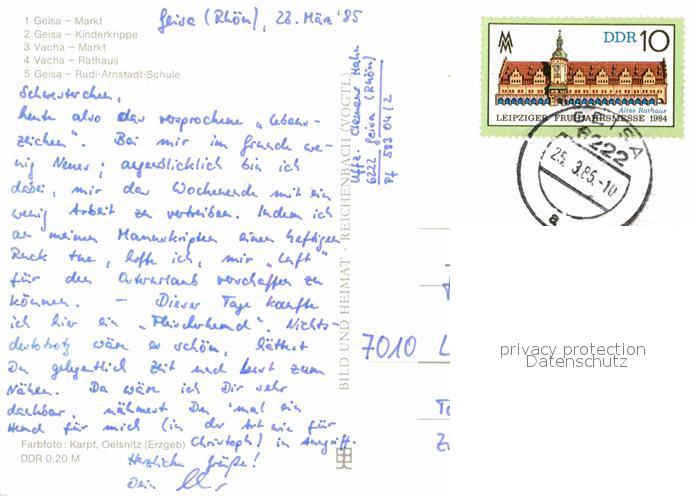 1 Geisa – Markt
2 Geisa – Kinderkrippe
3 Vacha – Markt
4 Vacha – Rathaus
5 Geisa – Rudi-Arnstadt-Schule
Geisa (Rhön), 23. März '85
Schwesterchen,
heute also das versprochene „Lebens-
zeichen“. Bei mir im Grunde we-
nig Neues; augenblicklich bin ich
dabei, mir das Wochenende mit ein
wenig Arbeit zu vertreiben. Indem ich
an meinen Manuskripten einen heftigen
Ruck tue, hoffe ich, mir „Luft“
für den Osterurlaub verschaffen zu
können. – Dieser Tage kaufte
ich hier ein „Fleischerhemd“. Nichts-
destotrotz wäre es schön, hättest
Du gelegentlich Zeit und Lust zum
Nähen. Da wäre ich Dir sehr
dankbar, nähmest Du 'mal ein
Hemd für mich (in der Art wie für
Christoph) in Angriff.
Herzliche Grüße!
Dein
Farbfoto: Karpf, Oelsnitz (Erzgeb)
DDR 0,20 M
BILD UND HEIMAT · REICHENBACH (VOGTL)
Uffz. Clemens Hahn
6222 Geisa (Rhön)
Pf 593 04/2
7010 L
DDR 10
Altes Rathaus
LEIPZIGER FRÜHJAHRSMESSE 1984
GEISA
6222
25.3.85.-10
a
privacy protection
Datenschutz